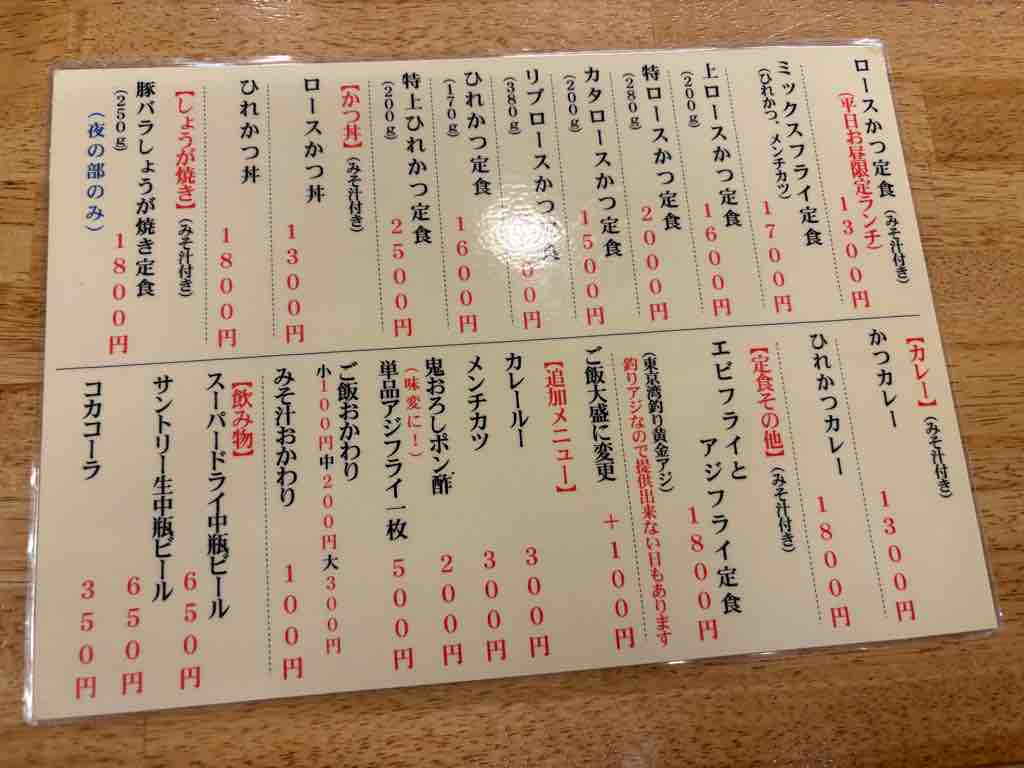 ロースかつ定食(みそ汁付き)
(平日お昼限定ランチ)
1300円
ミックスフライ定食
(ひれかつ、メンチカツ)
1700円
上ロースかつ定食
(200g)
1600円
特ロースかつ定食
(280g)
2000円
カタロースかつ定食
(200g)
1500円
リブロースかつ定食
(380g)
00円
ひれかつ定食
(170g)
1600円
特上ひれかつ定食
(200g)
2500円
【かつ丼】(みそ汁付き)
ロースかつ丼
1300円
ひれかつ丼
1800円
【しょうが焼き】(みそ汁付き)
豚バラしょうが焼き定食
(250g)
1800円
(夜の部のみ)
【カレー】(みそ汁付き)
かつカレー
1300円
ひれかつカレー
1800円
【定食その他】(みそ汁付き)
エビフライと
アジフライ定食
1800円
(東京湾釣り黄金アジ)
釣りアジなので提供出来ない日もあります
ご飯大盛に変更
+100円
【追加メニュー】
カレールー
300円
メンチカツ
300円
鬼おろしポン酢
200円
(味変に!)
単品アジフライ一枚
500円
ご飯おかわり
小100円中200円大300円
みそ汁おかわり
100円
【飲み物】
スーパードライ中瓶ビール
650円
サントリー生中瓶ビール
650円
コカコーラ
350円